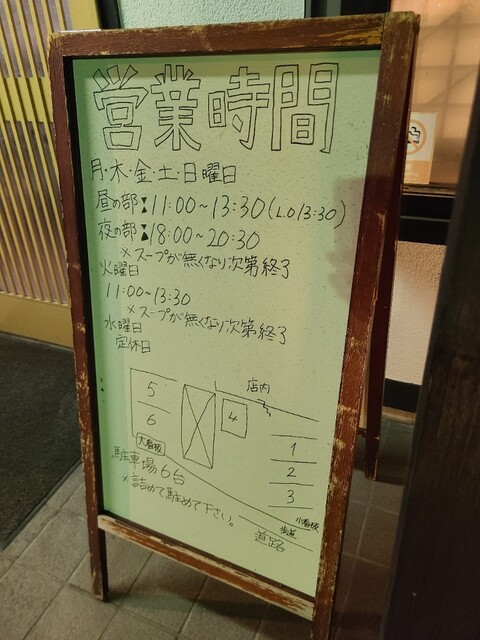 営業時間
月・木・金・土・日曜日
昼の部:11:00〜13:30(L.O 13:30)
夜の部:18:00〜20:30
×スープが無くなり次第終了
火曜日
11:00〜13:30
×スープが無くなり次第終了
水曜日
定休日
店内
5
6
4
1
2
3
大看板
駐車場6台
×詰めて駐めて下さい。
小看板
歩道
道路